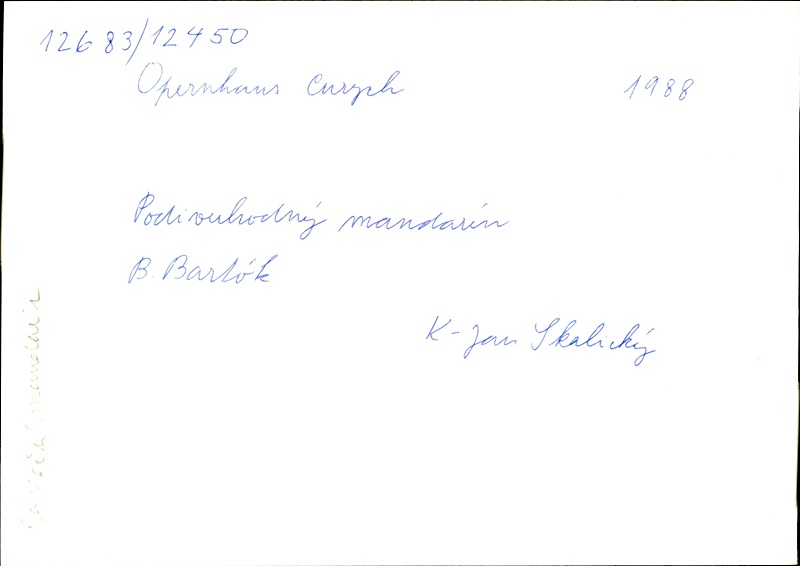 12683/12450
Opernhaus Curych 1988
Podivuhodný mandarín
B. Bartók
K-Jan Skalický
mandarin